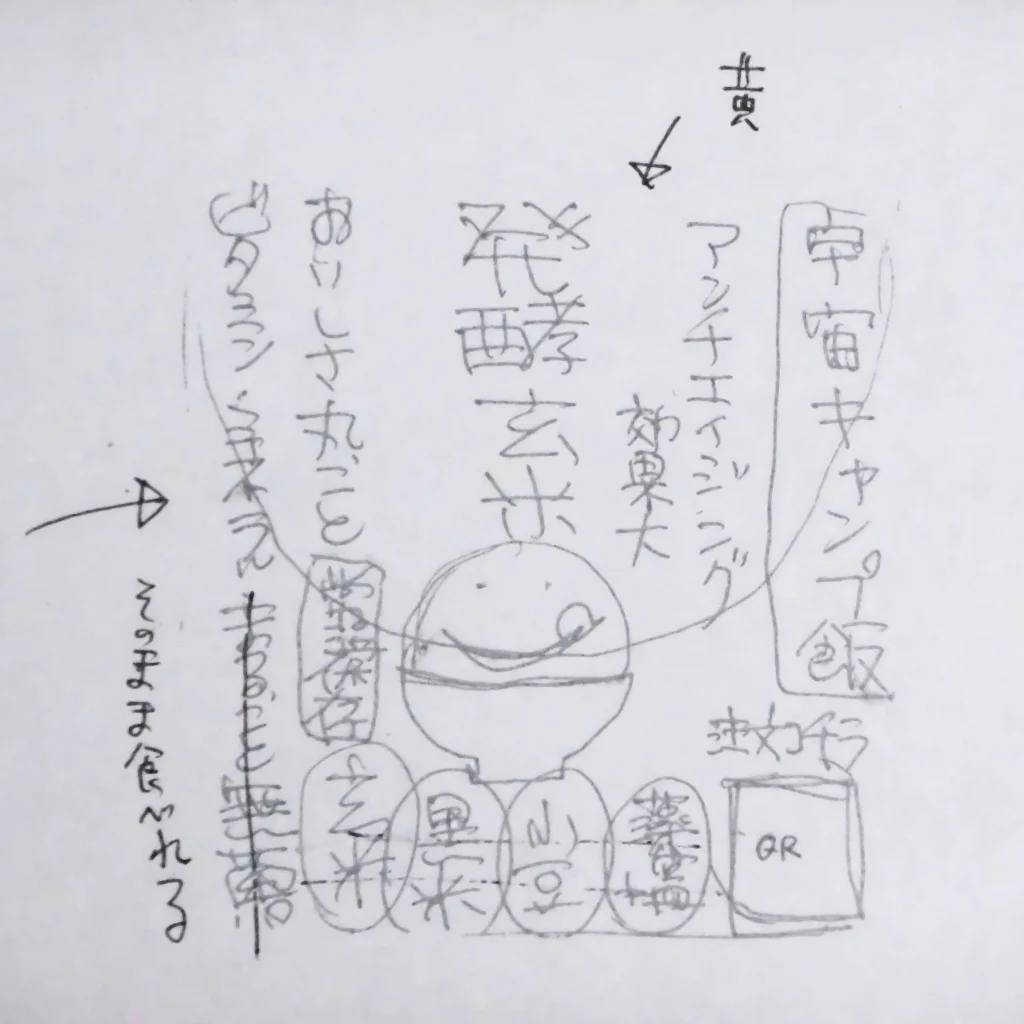 黄
宇宙キャンプ飯
アンチエイジング
効果大
発酵玄米
おいしさ丸ごと
常温保存
ビタミン・ミネラル
そのまま食べれる
注文チラ
QR
薬膳塩
小豆
黒米
玄米